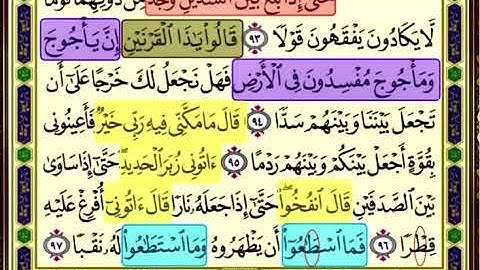 حَتَّىٰٓ إِذَا بَلَغَ بَيْنَ ٱلسَّدَّيْنِ وَجَدَ مِن دُونِهِمَا قَوْمًا
لَّا يَكَادُونَ يَفْقَهُونَ قَوْلًا ٩٣ قَالُوا۟ يَٰذَا ٱلْقَرْنَيْنِ إِنَّ يَأْجُوجَ
وَمَأْجُوجَ مُفْسِدُونَ فِى ٱلْأَرْضِ فَهَلْ نَجْعَلُ لَكَ خَرْجًا عَلَىٰٓ أَن
تَجْعَلَ بَيْنَنَا وَبَيْنَهُمْ سَدًّا ٩٤ قَالَ مَا مَكَّنِّى فِيهِ رَبِّى خَيْرٌ فَأَعِينُونِى
بِقُوَّةٍ أَجْعَلْ بَيْنَكُمْ وَبَيْنَهُمْ رَدْمًا ٩٥ ءَاتُونِى زُبَرَ ٱلْحَدِيدِ حَتَّىٰٓ إِذَا سَاوَىٰ
بَيْنَ ٱلصَّدَفَيْنِ قَالَ ٱنفُخُوا۟ حَتَّىٰٓ إِذَا جَعَلَهُۥ نَارًا قَالَ ءَاتُونِىٓ أُفْرِغْ عَلَيْهِ
قِطْرًا ٩٦ فَمَا ٱسْطَٰعُوٓا۟ أَن يَظْهَرُوهُ وَمَا ٱسْتَطَٰعُوا۟ لَهُۥ نَقْبًا ٩٧